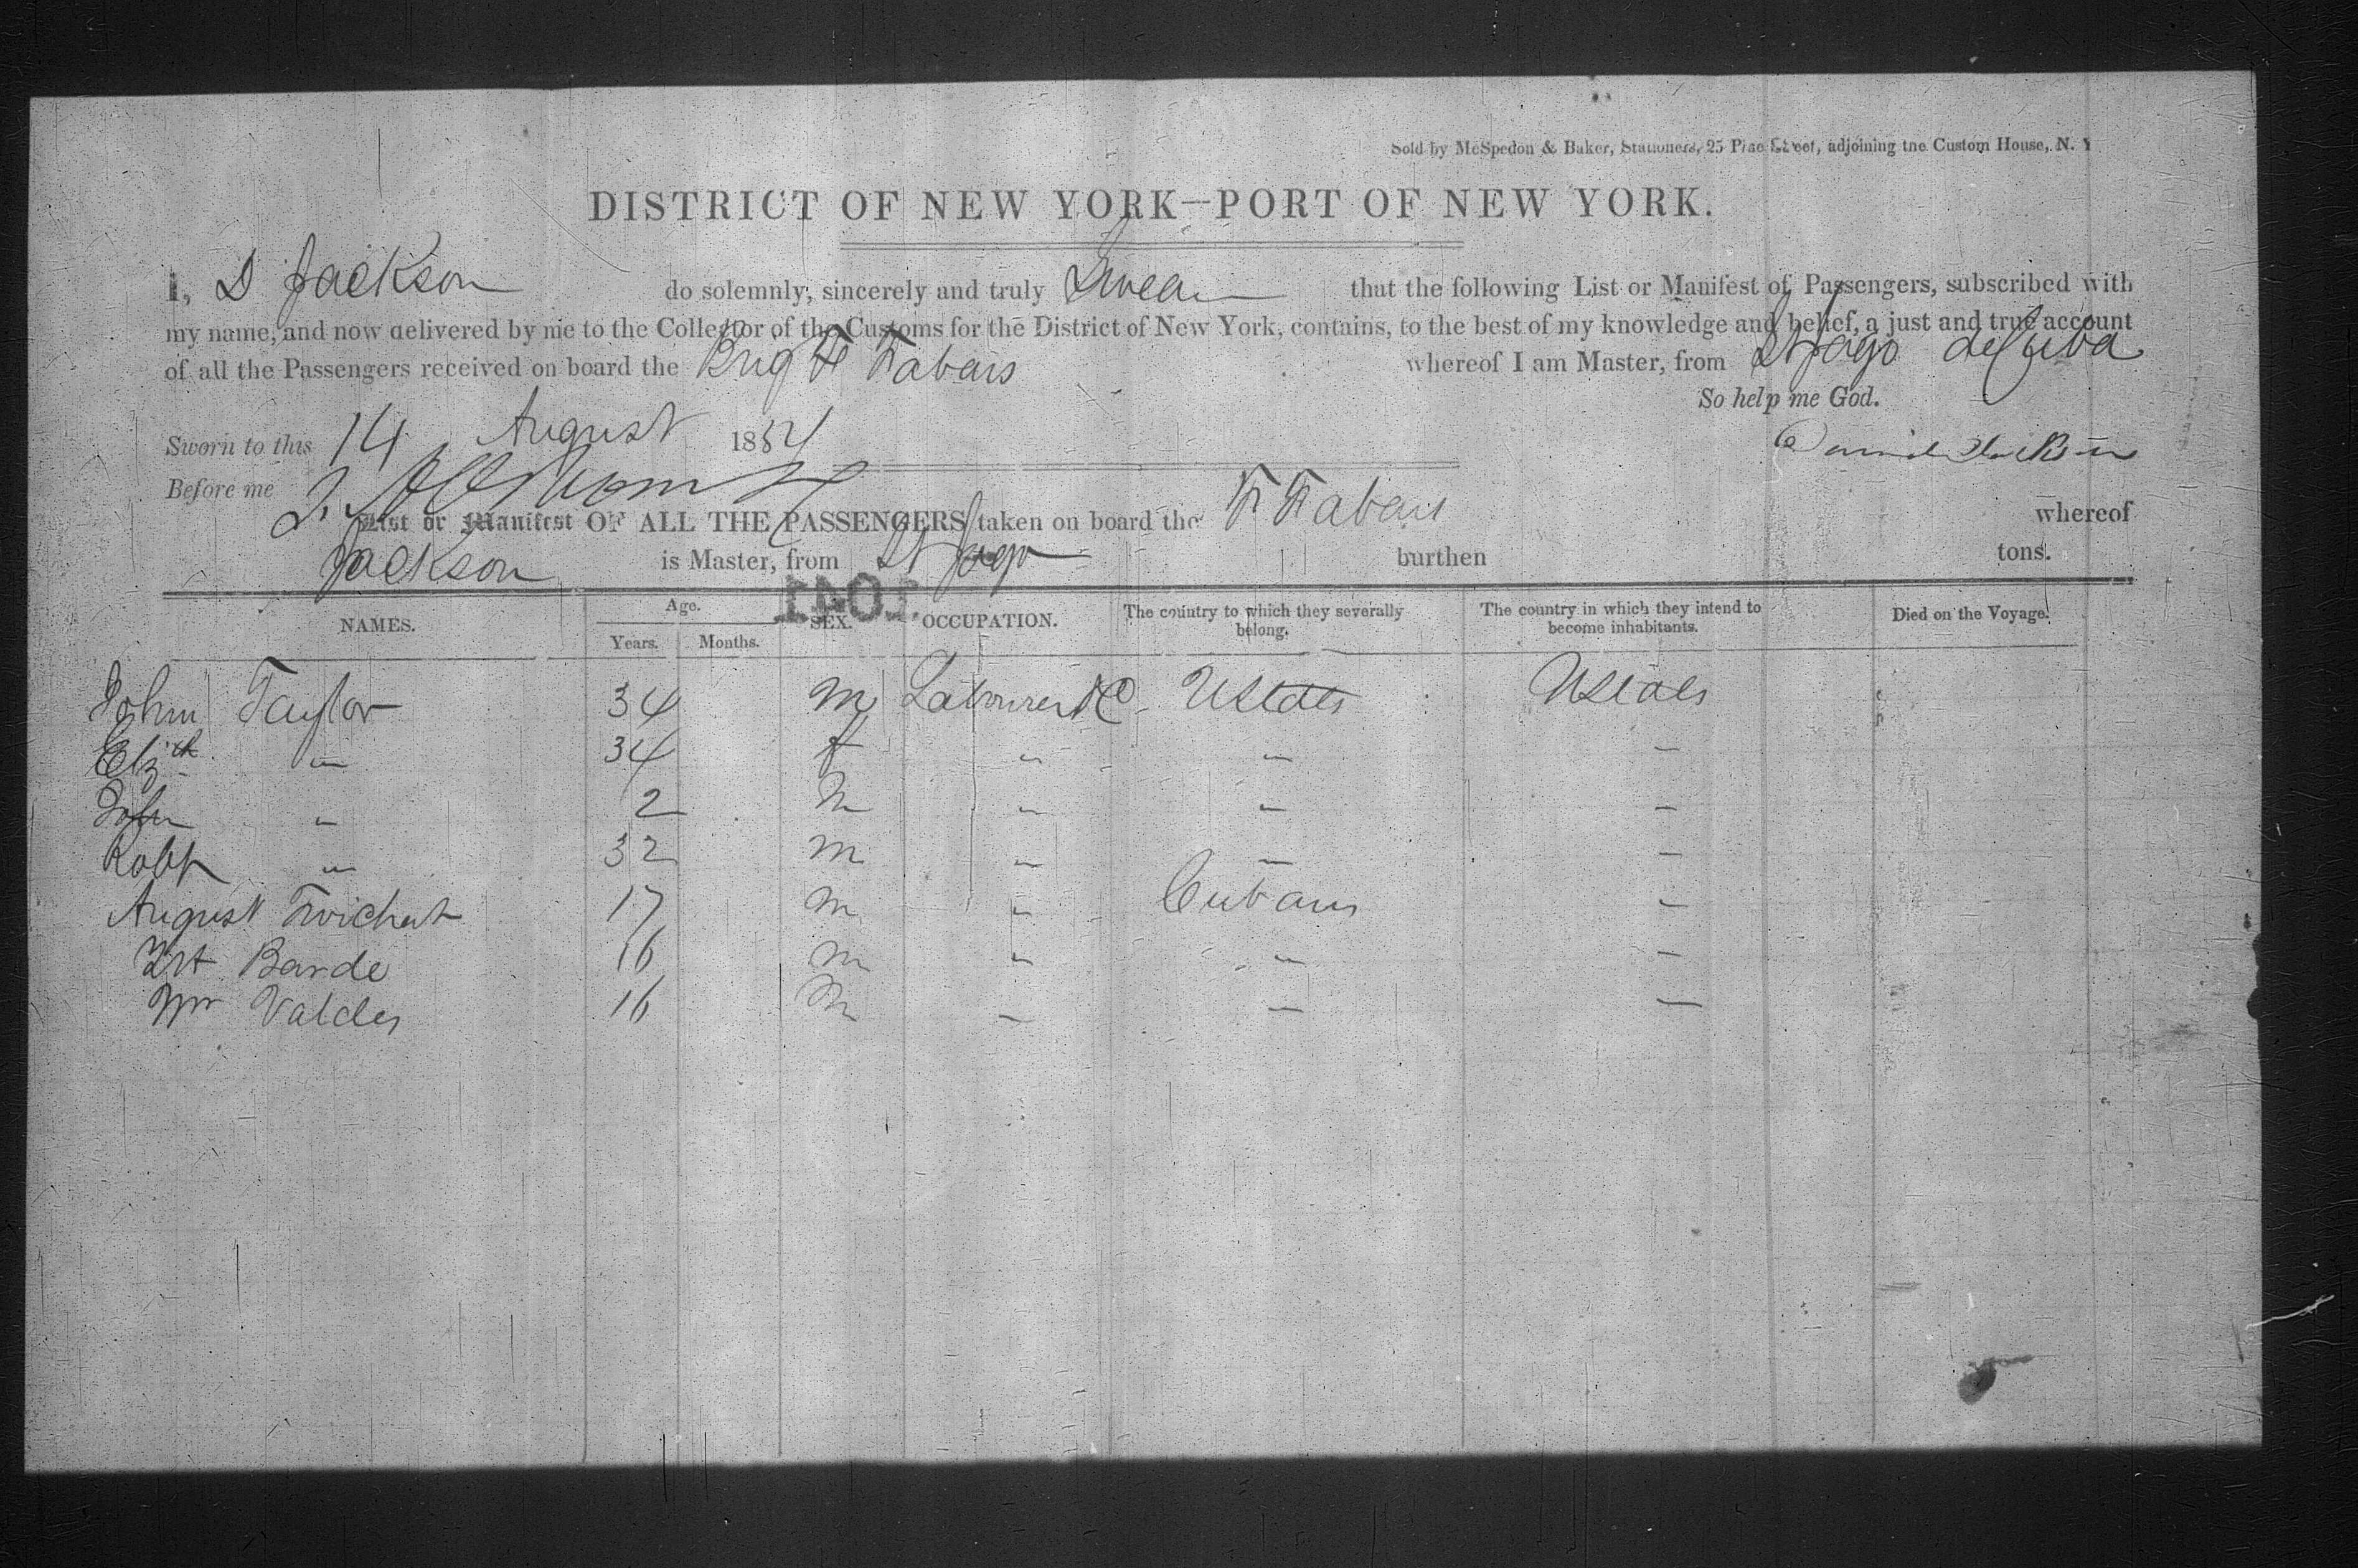 Sold by McSpedon & Baker, Stationers, 25 Pine Street, adjoining the Custom House, N. Y
DISTRICT OF NEW YORK—PORT OF NEW YORK.
I, D Jackson do solemnly, sincerely and truly Swear that the following List or Manifest of Passengers, subscribed with
my name, and now delivered by me to the Collector of the Customs for the District of New York, contains, to the best of my knowledge and belief, a just and true account
of all the Passengers received on board the Brig whereof I am Master, from St Jago de Cuba
So help me God.
Sworn to this 14 August 1854
Before me
List or Manifest OF ALL THE PASSENGERS taken on board the whereof
Jackson is Master, from St Jago burthen tons.
NAMES. Age. Years. Months. SEX. OCCUPATION. The country to which they severally belong. The country in which they intend to become inhabitants. Died on the Voyage.
John Taylor 34 m Labourer &c UStates UStates
Elizth " 34 f " " "
John " 2 m " " "
Robt " 32 m " " "
August 17 m " Cubans "
Barde 16 m " " "
Wm Valdes 16 m " " "